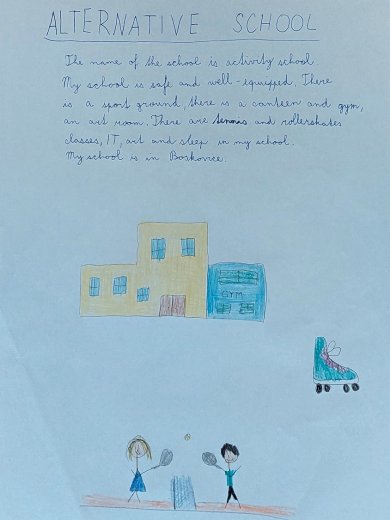 ALTERNATIVE SCHOOL
The name of the school is activity school.
My school is safe and well-equipped. There
is a sport ground, there is a canteen and gym,
an art room. There are tennis and rollerskates
classes, IT, art and sleep in my school.
My school is in Boskovice.
GYM